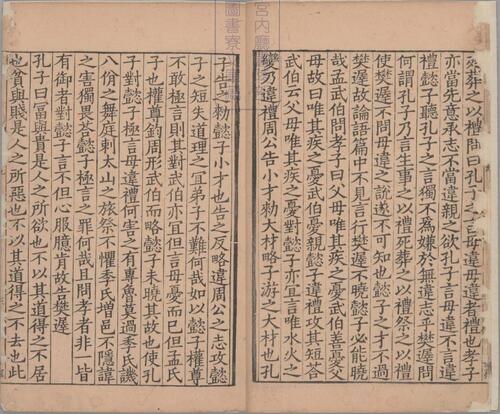 死葬之以禮問曰孔子之言毋違毋違者禮也孝子
亦當先意承志不當違親之欲孔子言毋違不言違
禮懿子聽孔子之言獨不為嫌於無違志乎樊遲問
何謂孔子乃言生事之以禮死葬之以禮祭之以禮
使樊遲不問毋違之說遂不可知也懿子之才不過
樊遲故論語篇中不見言行樊遲不曉懿子必能曉
哉孟武伯問孝子曰父母唯其疾之憂武伯善憂父
母故曰唯其疾之憂武伯憂親懿子違禮攻其短荅
武伯云父母唯其疾之憂對懿子亦宜言唯水火之
變乃違禮周公告小才勑大材略子游之大材也孔
子告之勑懿子小才也告之反略違周公之志攻懿
子之短失道理之宜弟子不難何哉如以懿子權尊
不敢極言則其對武伯亦宜但言毋憂而已但孟氏
子也權尊鈞周形武伯而略懿子未曉其故也使孔
子對懿子極言毋違禮何害之有專魯莫過季氏譏
八佾之舞庭刺太山之旅祭不懼季氏增邑不隱諱
之害獨畏荅懿子極言之罪何哉且問孝者非一皆
有御者對懿子言不但心服臆肯故告樊遲
孔子曰富與貴是人之所欲也不以其道得之不居
也貧與賤是人之所惡也不以其道得之不去也此
宮內廳
圖書寮